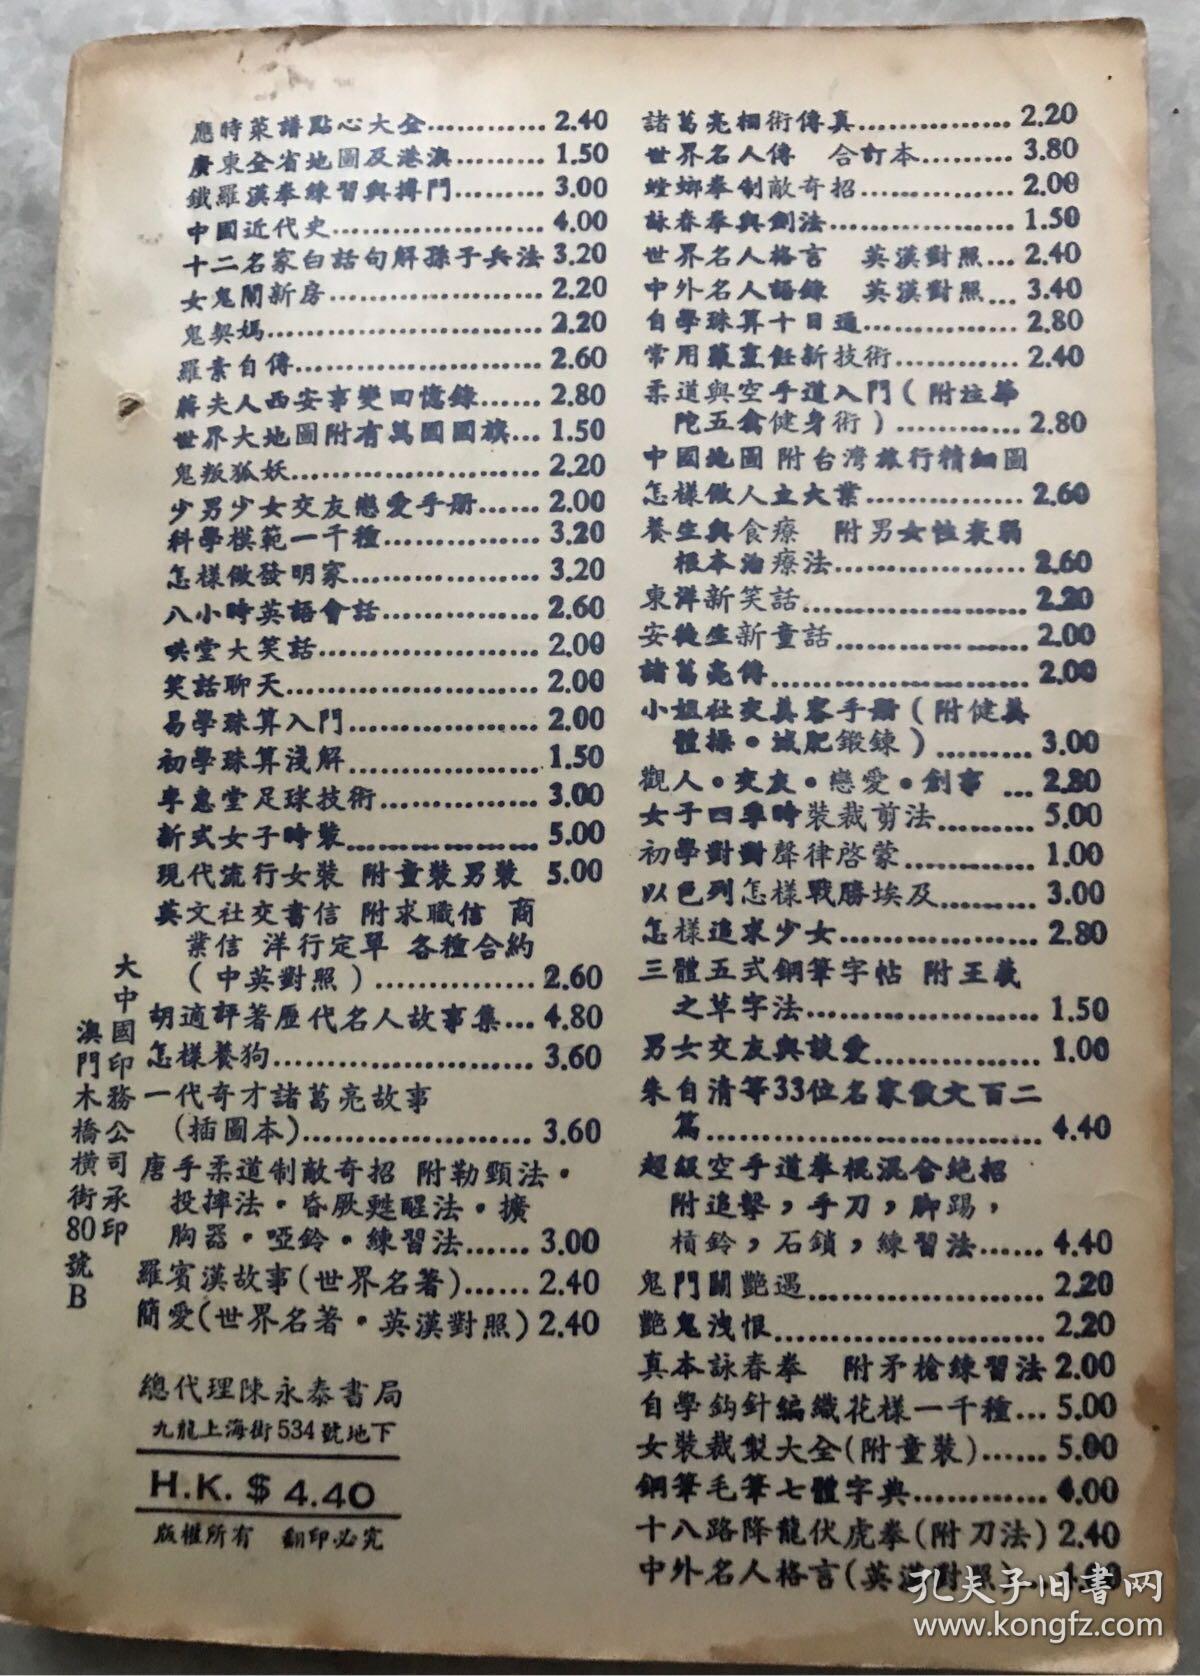 應時菜譜點心大全............2.40
廣東全省地圖及港澳.........1.50
鐵羅漢拳練習與搏鬥.........3.00
中國近代史.....................4.00
十二名家白話句解孫子兵法 3.20
女鬼鬧新房.....................2.20
鬼契媽...........................2.20
羅素自傳........................2.60
蔣夫人西安事變回憶錄......2.80
世界大地圖附有萬國國旗...1.50
鬼叛狐妖........................2.20
少男少女交友戀愛手册......2.00
科學模範一千種...............3.20
怎樣做發明家..................3.20
八小時英語會話...............2.60
哄堂大笑話.....................2.00
笑話聊天........................2.00
易學珠算入門..................2.00
初學珠算淺解..................1.50
李惠堂足球技術...............3.00
新式女子時裝..................5.00
現代流行女裝 附童裝男裝 5.00
英文社交書信 附求職信 商
業信 洋行定單 各種合約
(中英對照)...............2.60
胡適評著歷代名人故事集...4.80
怎樣養狗........................3.60
一代奇才諸葛亮故事
(插圖本)......................3.60
唐手柔道制敵奇招 附勒頸法・
投摔法・昏厥甦醒法・擴
胸器・啞鈴・練習法......3.00
羅賓漢故事(世界名著)......2.40
簡愛(世界名著・英漢對照)2.40
大中國印務公司承印
澳門木橋橫街80號B
總代理陳永泰書局
九龍上海街534號地下
H.K. $ 4.40
版權所有 翻印必究
諸葛亮相術傳真...............2.20
世界名人傳 合訂本.........3.80
螳螂拳制敵奇招...............2.00
詠春拳與劍法..................1.50
世界名人格言 英漢對照...2.40
中外名人語錄 英漢對照...3.40
自學珠算十日通...............2.80
常用菜烹飪新技術............2.40
柔道與空手道入門(附註華
陀五禽健身術)............2.80
中國地圖 附台灣旅行精細圖
怎樣做人立大業...............2.60
養生與食療 附男女性衰弱
根本治療法..................2.60
東洋新笑話.....................2.20
安徒生新童話..................2.00
諸葛亮傳........................2.00
小姐社交美容手册(附健美
體操・減肥鍛鍊).........3.00
觀人・交友・戀愛・創事...2.80
女子四季時裝裁剪法.........5.00
初學對對聲律啓蒙............1.00
以色列怎樣戰勝埃及.........3.00
怎樣追求少女..................2.80
三體五式鋼筆字帖 附王羲
之草字法.....................1.50
男女交友與談愛...............1.00
朱自清等33位名家散文百二
篇..............................4.40
超級空手道拳棍混合絕招
附追擊，手刀，脚踢，
槓鈴，石鎖，練習法......4.40
鬼門關艷遇.....................2.20
艷鬼洩恨........................2.20
真本詠春拳 附矛槍練習法 2.00
自學鈎針編織花樣一千種...5.00
女裝裁製大全(附童裝)......5.00
鋼筆毛筆七體字典............4.00
十八路降龍伏虎拳(附刀法) 2.40
中外名人格言(英漢對照)
孔夫子旧書网
www.kongfz.com